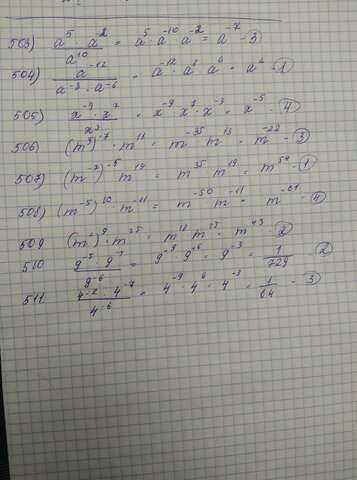 503) (a⁵ · a⁻²)/a¹⁰ = a⁵ · a⁻¹⁰ · a⁻² = a⁻⁷ - 3
504) a⁻¹²/(a⁻⁸ · a⁻⁶) = a⁻¹² · a⁸ · a⁶ = a² - 1
505) (x⁻⁹ · x⁷)/x³ = x⁻⁹ · x⁷ · x⁻³ = x⁻⁵ - 4
506) (m⁵)⁻⁷ · m¹³ = m⁻³⁵ m¹³ = m⁻²² - 3
507) (m⁻⁷)⁻⁵ · m¹⁹ = m³⁵ m¹⁹ = m⁵⁴ - 1
508) (m⁻⁵)¹⁰ · m⁻¹¹ = m⁻⁵⁰ m⁻¹¹ = m⁻⁶¹ - 4
509 (m²)⁹ · m²⁵ = m¹⁸ m²⁵ = m⁴³ - 2
510 · 9⁻⁶ = 9⁻³ = 1/729 2
511. (4⁻² · 4⁻⁷)/4⁻⁶ = 4⁻⁹ · 4⁶ = 4⁻³ = 1/64 - 3